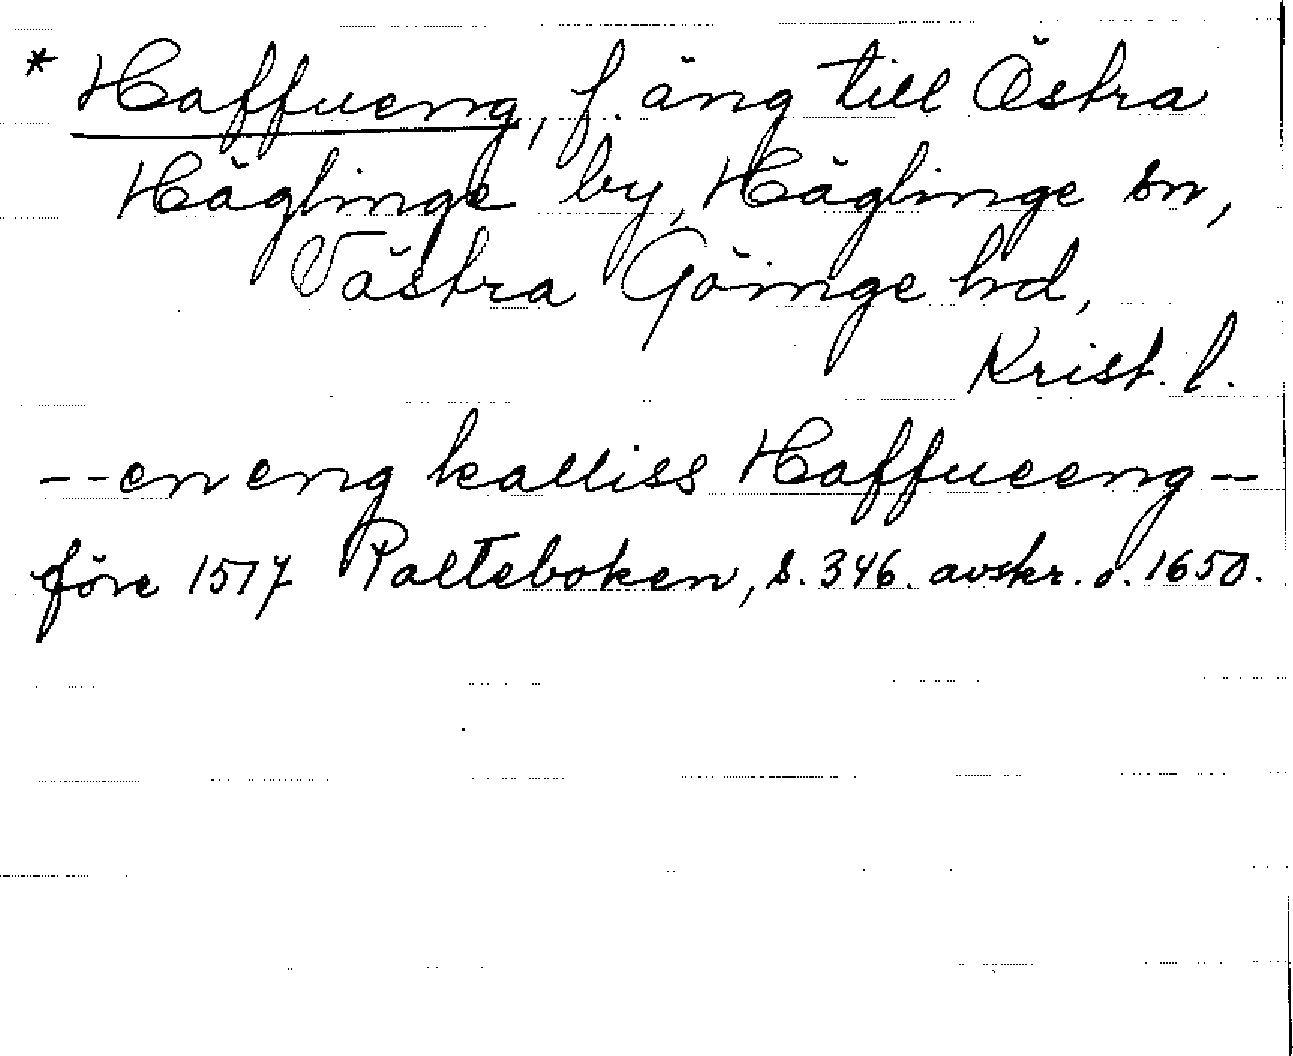 * Haffueng, f. äng till Östra
Häglinge by, Häglinge sn,
Västra Göinge hd,
Krist. l.
-- en eng kalliss Haffueeng --
före 1517 Palteboken, s. 346. avskr. o. 1650.